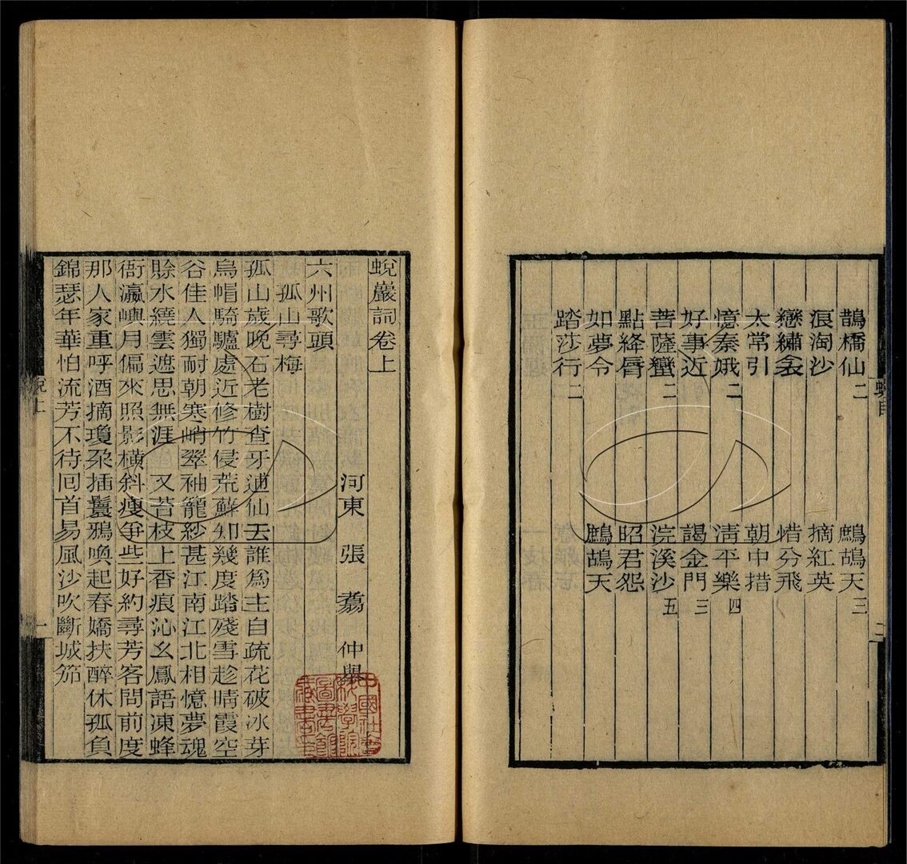 鵲橋仙二　鷓鴣天三
浪淘沙　摘紅英
戀繡衾　惜分飛
太常引　朝中措
憶秦娥二　清平樂四
好事近　謁金門三
菩薩蠻二　浣溪沙五
點絳脣　昭君怨
如夢令　鷓鴣天
踏莎行二
蛻巖詞卷上
河東　張　翥　仲舉
六州歌頭
孤山尋梅
孤山歲晚石老樹查牙逋仙去誰爲主自疏花破冰芽
烏帽騎驢處近修竹侵荒蘚知幾度踏殘雪趁晴霞空
谷佳人獨耐朝寒峭翠袖籠紗甚江南江北相憶夢魂
賒水繞雲遮思無涯　又苔枝上香痕沁幺鳳語凍蜂
衙瀛嶼月偏來照影橫斜瘦爭些好約尋芳客問前度
那人家重呼酒摘瓊朶插鬟鴉喚起春嬌扶醉休孤負
錦瑟年華怕流芳不待回首易風沙吹斷城笳
中國社會
科學院
圖書館